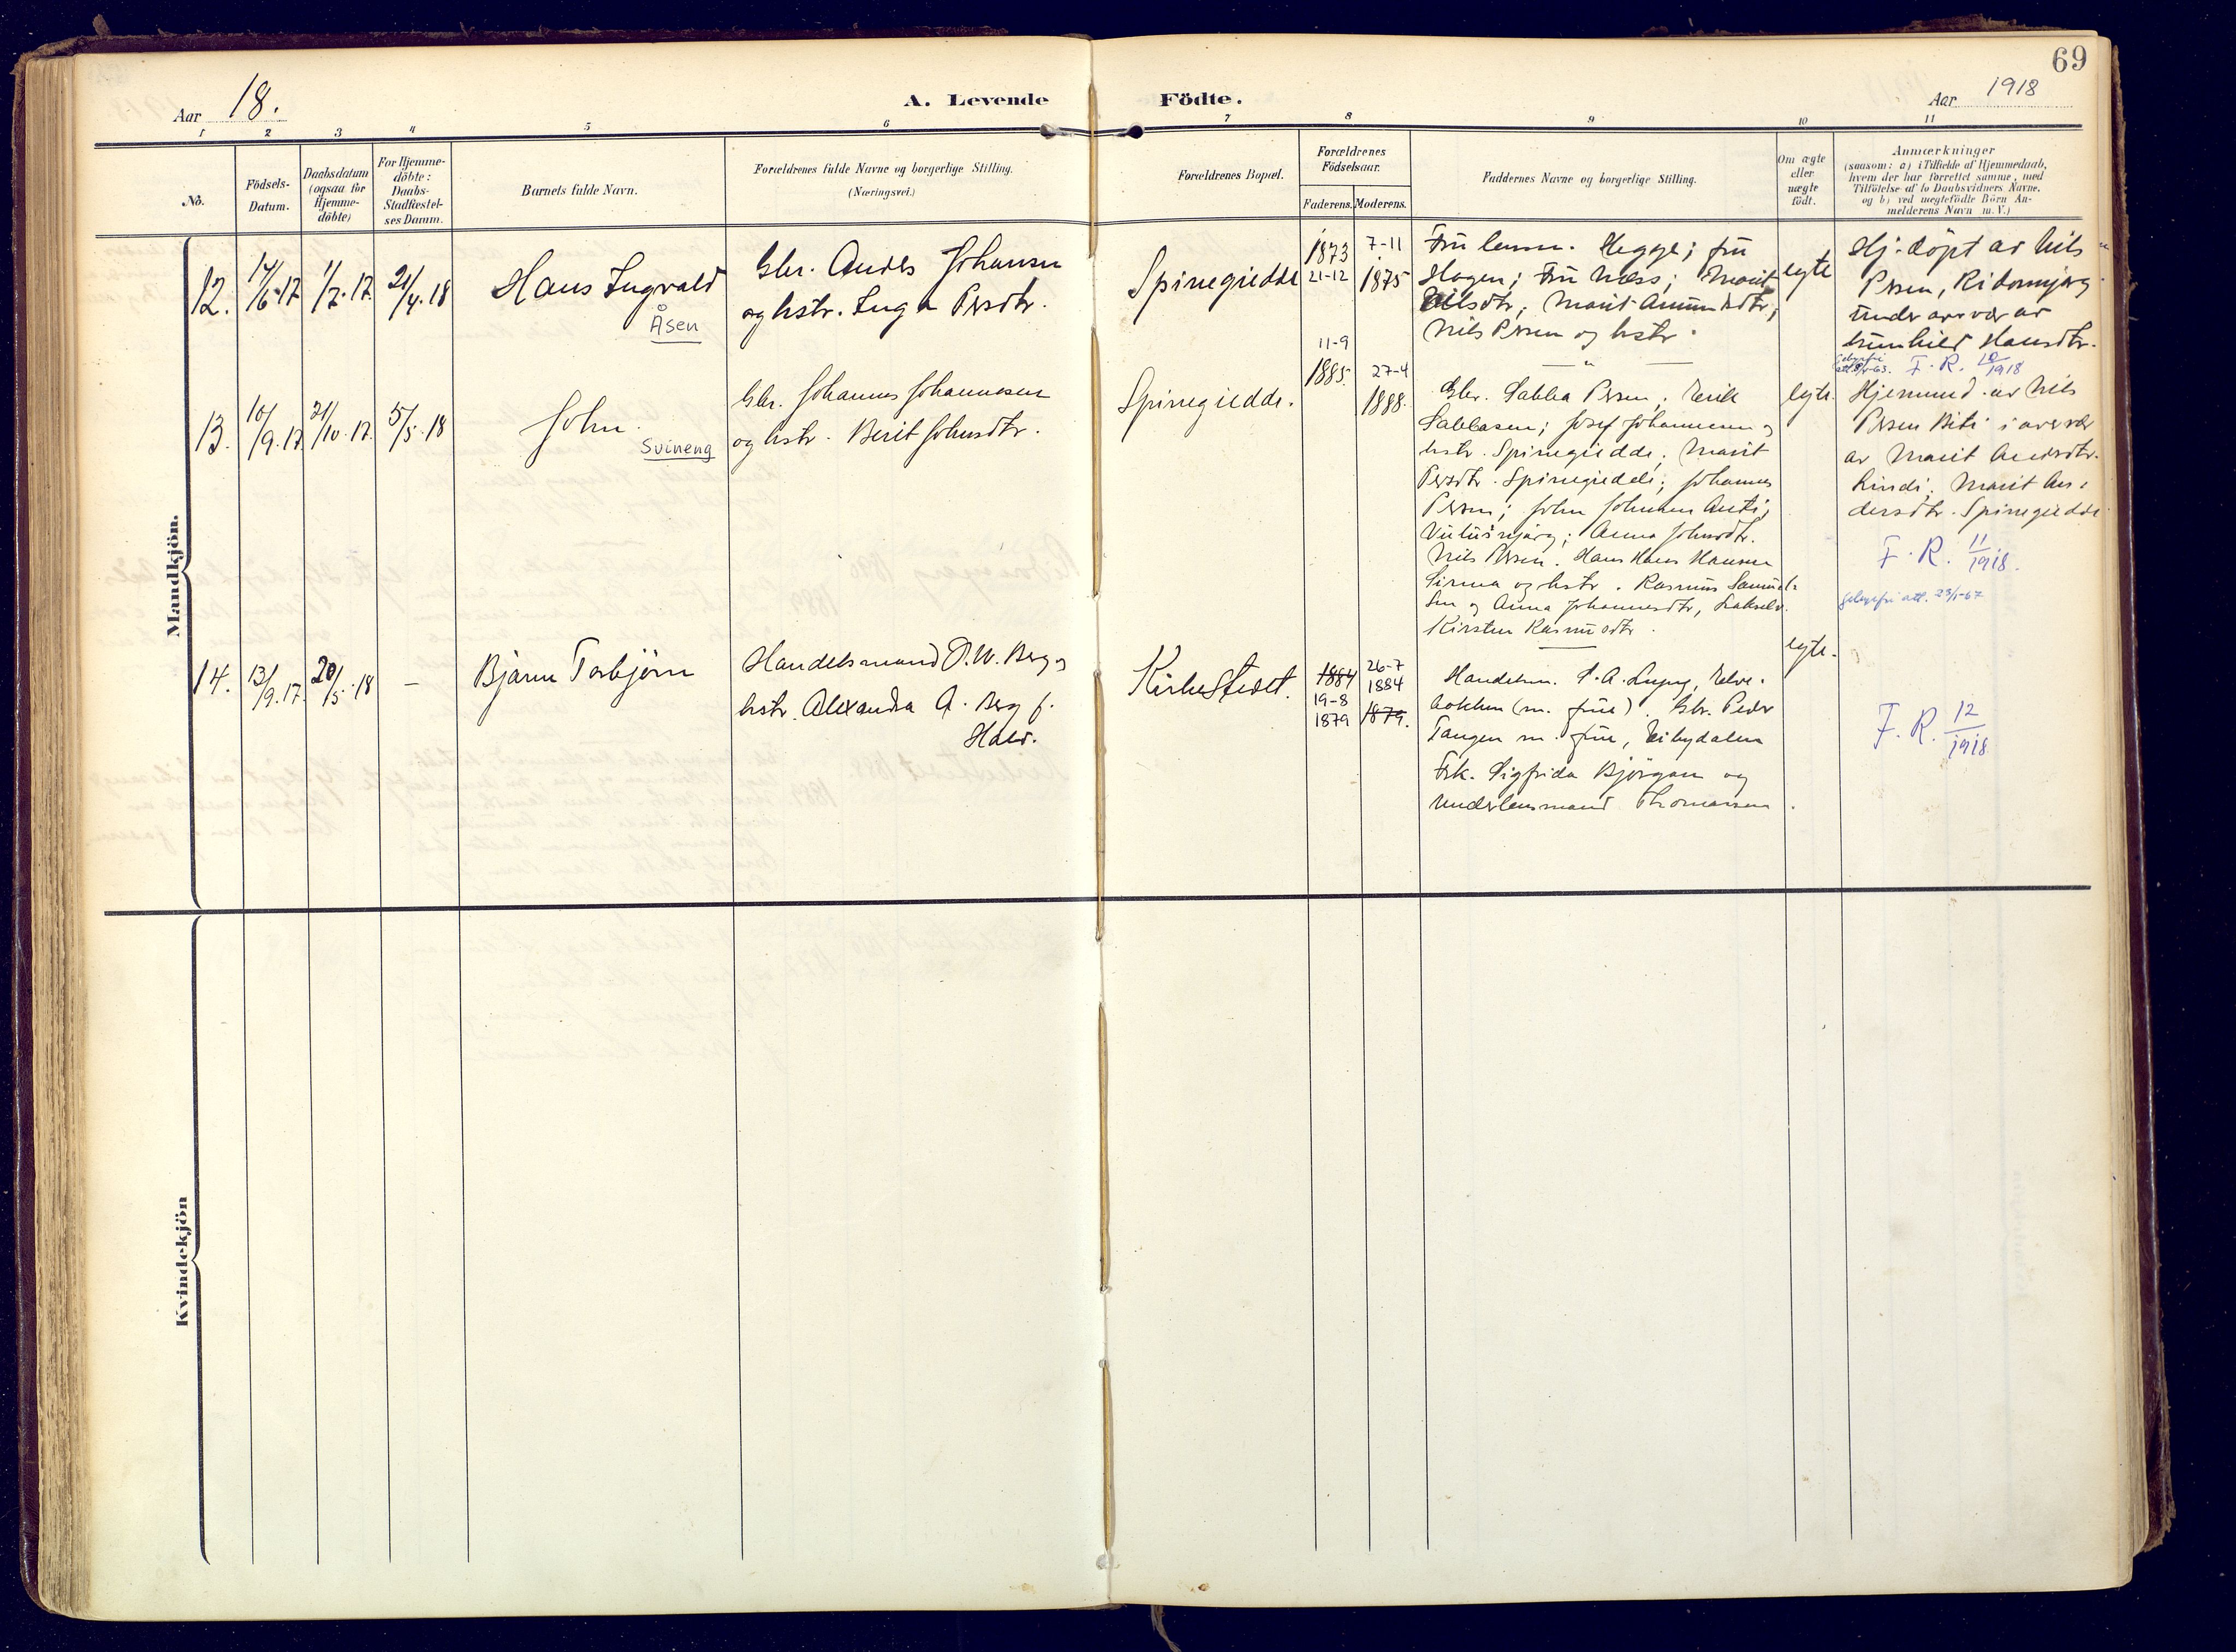 69
Aar 18.
A. Levende
Födte.
Aar 1918
1 2 3 4 5 6 7 8 9 10 11
No.
Födsels-
Datum.
Daabsdatum
(ogsaa for
Hjemme-
döbte)
For Hjemme-
döbte:
Daabs-
Stadfæstel-
ses Datum.
Barnets fulde Navn.
Forældrenes fulde Navne og borgerlige Stilling.
(Næringsvei.)
Forældrenes Bopæl.
Forældrenes
Födselsaar.
Faderens. Moderens.
Faddernes Navne og borgerlige Stilling.
Om ægte
eller
uægte
födt.
Anmærkninger
(saasom: a) i Tilfælde af Hjemmedaab,
hvem der har forrettet samme, med
Tilföielse af to Daabsvidners Navne,
og b) ved uægtefödte Börn An-
melderens Navn m. V.)
Mandkjön.
12.
14/6-17
1/7-17.
21/4-18
Hans Ingvald
Åsen
Gbr. Anders Johansen
og hstr. Inga Persdtr.
Spinegiedde
1873
21-12
7-11
1875
Fru lensm. Hegge; fru
Hagen; Fru Næss; Marit
Nilsdtr; Marit Amundsdtr;
Nils Persen og hstr.
egte
Hj. döpt av Nils
Persen, Ridonnjarg
under overvær av
Gunhild Hansdtr.
F. R. 10/1918
13.
10/9.17.
21/10.17.
5/5.18
John.
Svineng
Gbr. Johannes Johannesen
og hstr. Berit Johnsdtr.
Spinegiedde.
11-9
1885.
27-4
1888.
Gbr. Sabba Persen; Erik
Sabbasen; Josef Johannesen og
hstr. Spinegiedde; Marit
Persdtr. Spinegiedde; Johannes
Persen; John Johnsen Anti;
Anna Johnsdtr.
Nils Persen. Hans Hans Hansen
Sirma og hstr. Rasmus Samuel-
sen og Anna Johannesdtr,
Kirsten Rasmusdtr.
egte.
Hjemmed. av Nils
Persen Biti i overvær
av Marit Andersdtr.
Marit An-
dersdtr. Spinegiedde
F. R. 11/1918.
Gebyrfri att. 23/1-67
14.
13/9.17.
20/5.18
–
Bjarne Torbjörn
Handelsmand O. W. Berg og
hstr. Alexandra A. Berg f.
Hald.
Kirkestedet.
1884
19-8
1879
26-7
1884
1879.
Handelsm.
(m. frue). Gbr. Peder
Tangen m. frue,
Frk. Sigfrida Bjørgan og
Underlensmand Thomassen.
egte.
F. R. 12/1918
Kvindekjön